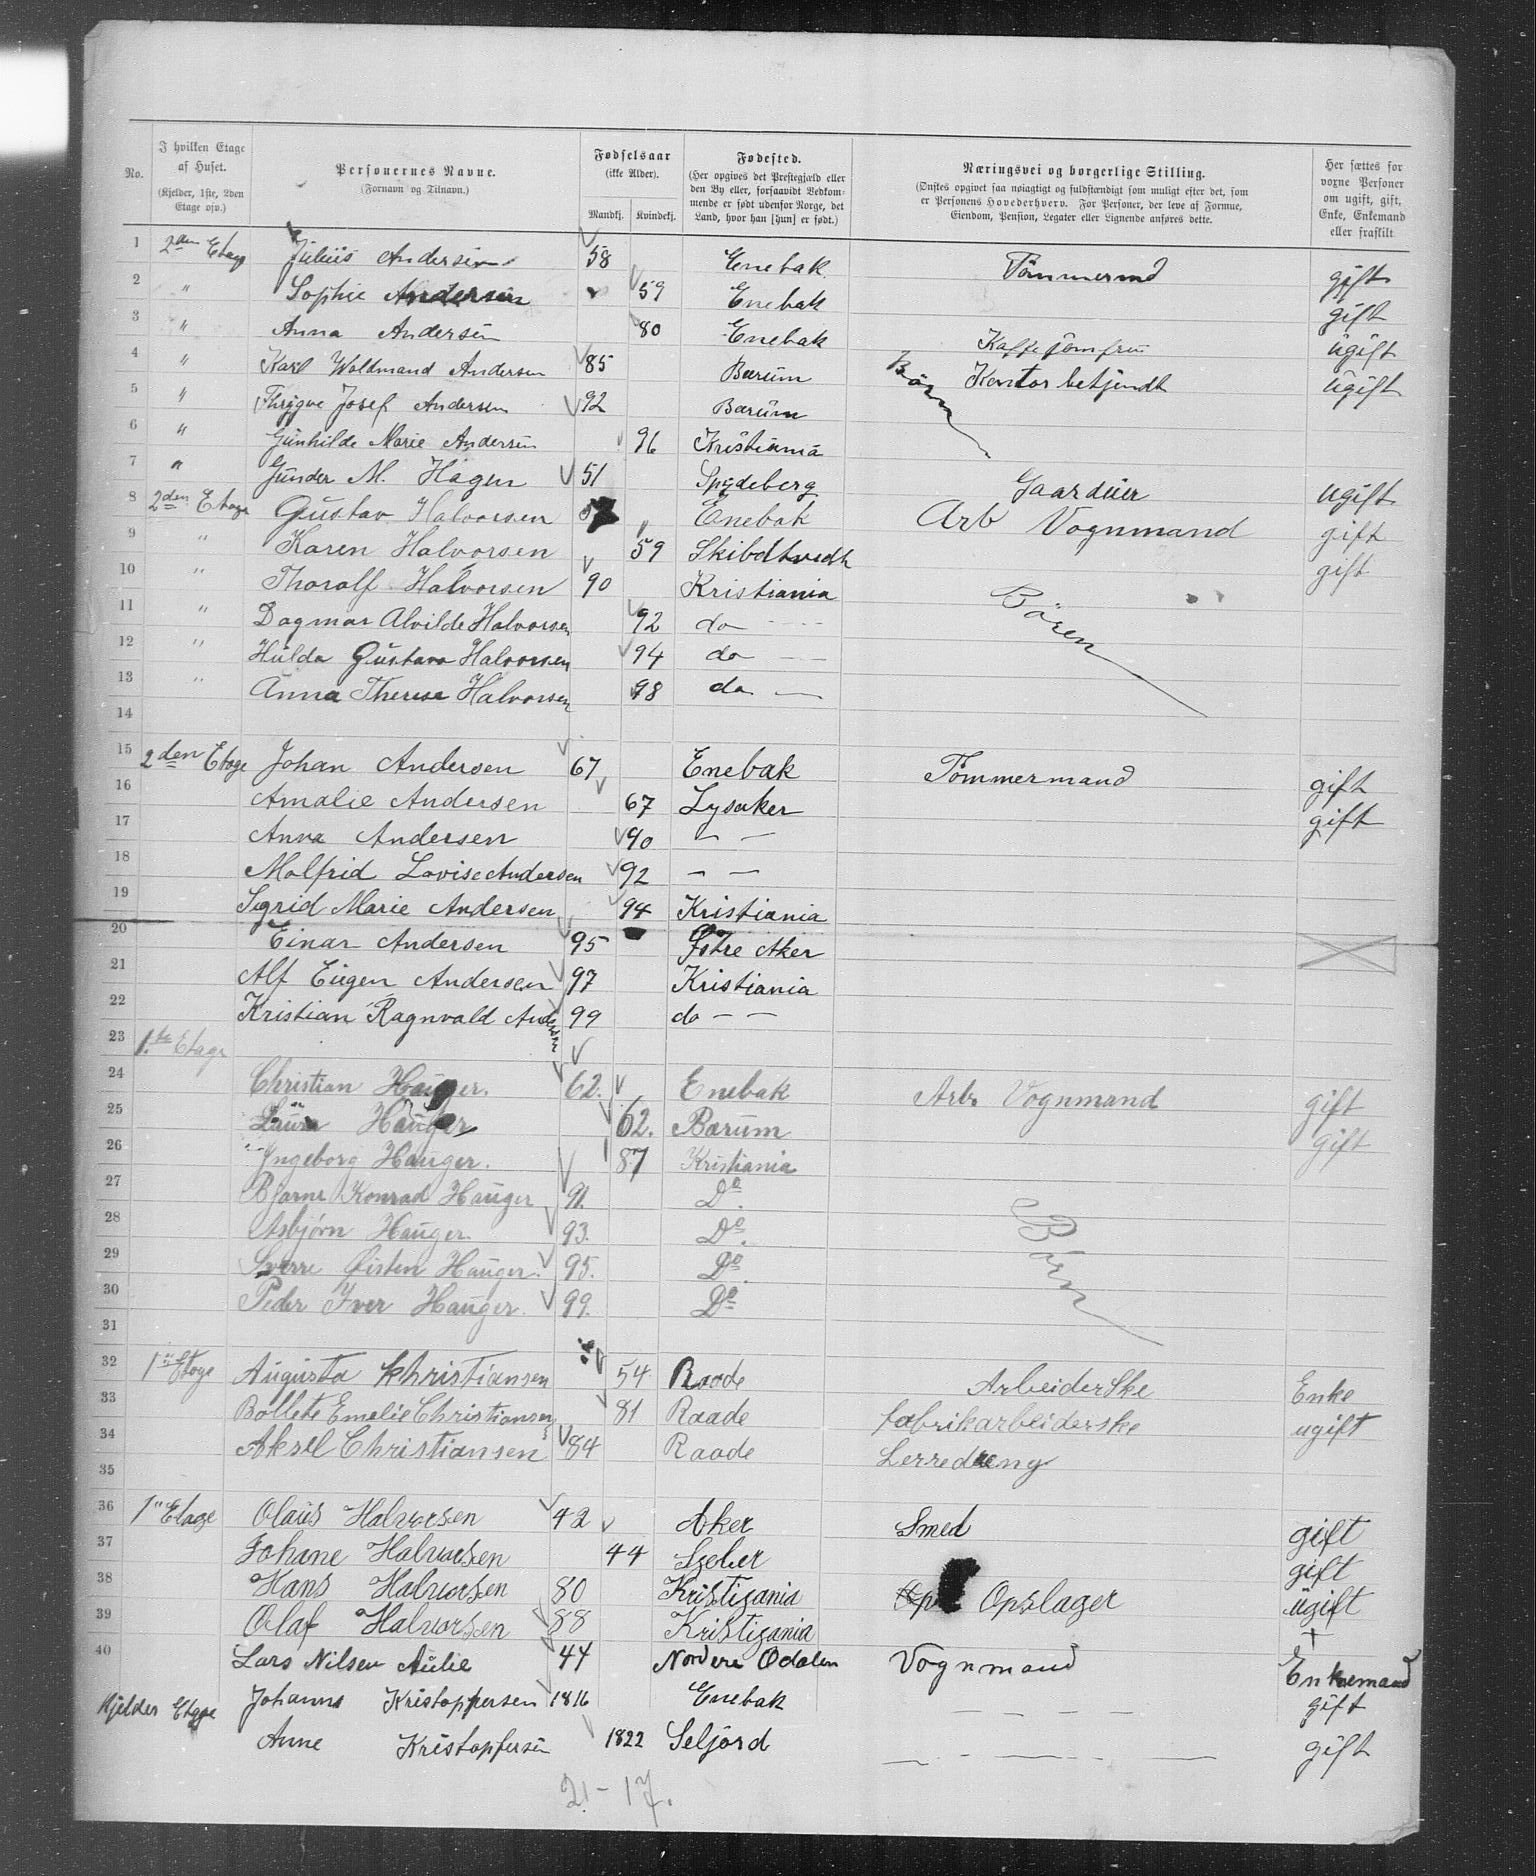 No. | I hvilken Etage af Huset. (Kjelder, 1ste, 2den Etage osv.) | Personernes Navne. (Fornavn og Tilnavn.) | Fødselsaar (ikke Alder). Mandkj. Kvindekj. | Fødested. (Her opgives det Prestegjæld eller den By eller, forsaavidt Vedkommende er født udenfor Norge, det Land, hvor han [hun] er født.) | Næringsvei og borgerlige Stilling. (Ønskes opgivet saa nøiagtigt og fuldstændigt som muligt efter det, som er Personens Hovederhverv. For Personer, der leve af Formue, Eiendom, Pension, Legater eller Lignende anføres dette.) | Her sættes for voxne Personer om ugift, gift, Enke, Enkemand eller fraskilt
1 2den Etage Julius Andersen 58 Enebak Tömmermd gift
2 " Sophie Andersen 59 Enebak gift
3 " Anna Andersen 80 Enebak Kaffejömfru ugift
4 " Karl Woldmand Andersen 85 Bærum Kontorbetjendt ugift
5 " Thrygve Josef Andersen 92 Bærum Börn
6 " Gunhilde Marie Andersen 96 Kristiania
7 " Gunder M. Hagen 51 Spydeberg Gaardeier ugift
8 2den Etage Gustav Halvorsen Enebak Arb Vognmand gift
9 " Karen Halvorsen 59 Skibdtvedt gift
10 " Thoralf Halvorsen 90 Kristiania
11 " Dagmar Alvilde Halvorsen 92 do Bören
12 " Hulda Gustava Halvorsen 94 do
13 " Anna Therese Halvorsen 98 do
14
15 2den Etage Johan Andersen 67 Enebak Tömmermand gift
16 Amalie Andersen 67 Lysaker gift
17 Anna Andersen 90 — —
18 Malfrid Lovise Andersen 92 — —
19 Sigrid Marie Andersen 94 Kristiania
20 Einar Andersen 95 Østre Aker
21 Alf Eugen Andersen 97 Kristiania
22 Kristian Ragnvald Andersen 99 do — —
23 1.ste Etage
24 Christian Hauger. 62. Enebak Arb. Vognmand gift
25 Laura Hauger 62. Bærum gift
26 Ingeborg Hauger. 87 Kristiania
27 Bjarne Konrad Hauger 91. Do.
28 Asbjørn Hauger. 93. Do. Börn
29 Sverre Øisten Hauger. 95. Do
30 Peder Iver Hauger. 99. Do
31
32 1ste Etage Augusta Khristiansen 54 Raade Arbeiderske Enke
33 Bollete Emelie Christiansen 81 Raade fabrikarbeiderske ugift
34 Aksel Christiansen 84 Raade Lerredreng
35
36 1" Etage Olaus Halvorsen 42 Aker Smed gift
37 Johane Halvorsen 44 gift
38 Hans Halvorsen 80 Kristigania Opslager ugift
39 Olaf Halvorsen 88 Kristigania
40 Lars Nilsen Aulie 44 Nordre Odalen Vognmand Enkemand
Kjelder Etage Johannes Kristoppersen 1816 Enebak — — — — gift
Anne Kristopfersen 1822 Seljord — — — gift
21 - 17.